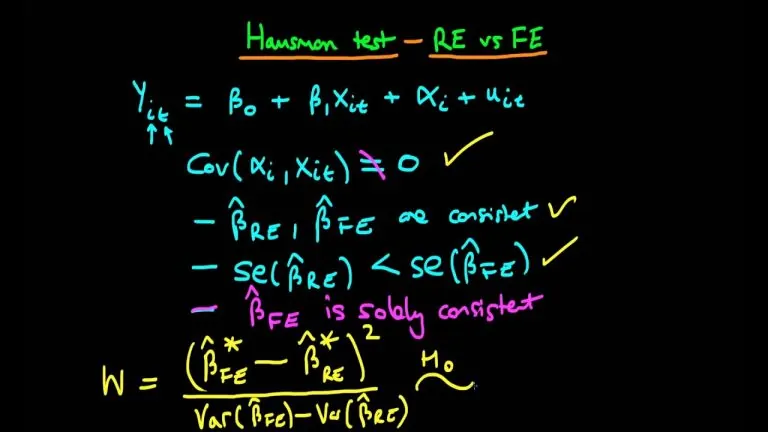 Hausman test — RE vs FE
Yit = β0 + β1Xit + αi + uit
↑↑
Cov(αi, Xit) ≠ 0 ✓
- β̂RE, β̂FE are consistet ✓
- se(β̂RE) < se(β̂FE) ✓
- β̂FE is solely consistent
W = (β̂*FE - β̂*RE)² / Var(β̂FE) - Var(β̂RE) H0 ~